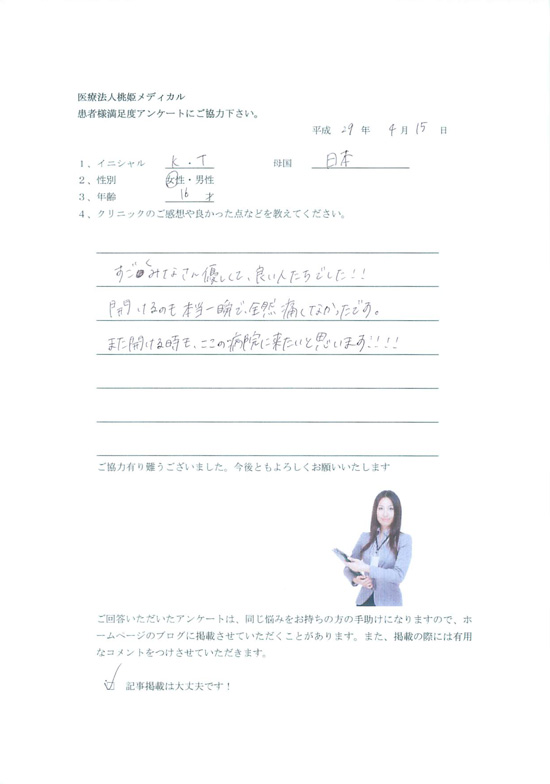 医療法人桃姫メディカル
患者様満足度アンケートにご協力下さい。
平成 29 年 4 月 15 日
1、イニシャル K.T 母国 日本
2、性別 女性・男性
3、年齢 16 才
4、クリニックのご感想や良かった点などを教えてください。
すごくみなさん優しくて、良い人たちでした!!
開けるのも本当一瞬で、全然痛くなかったです。
また開ける時も、ここの病院に来たいと思います!!!!
ご協力有り難うございました。今後ともよろしくお願いいたします
ご回答いただいたアンケートは、同じ悩みをお持ちの方の手助けになりますので、ホ
ームページのブログに掲載させていただくことがあります。また、掲載の際には有用
なコメントをつけさせていただきます。
☑ 記事掲載は大丈夫です!